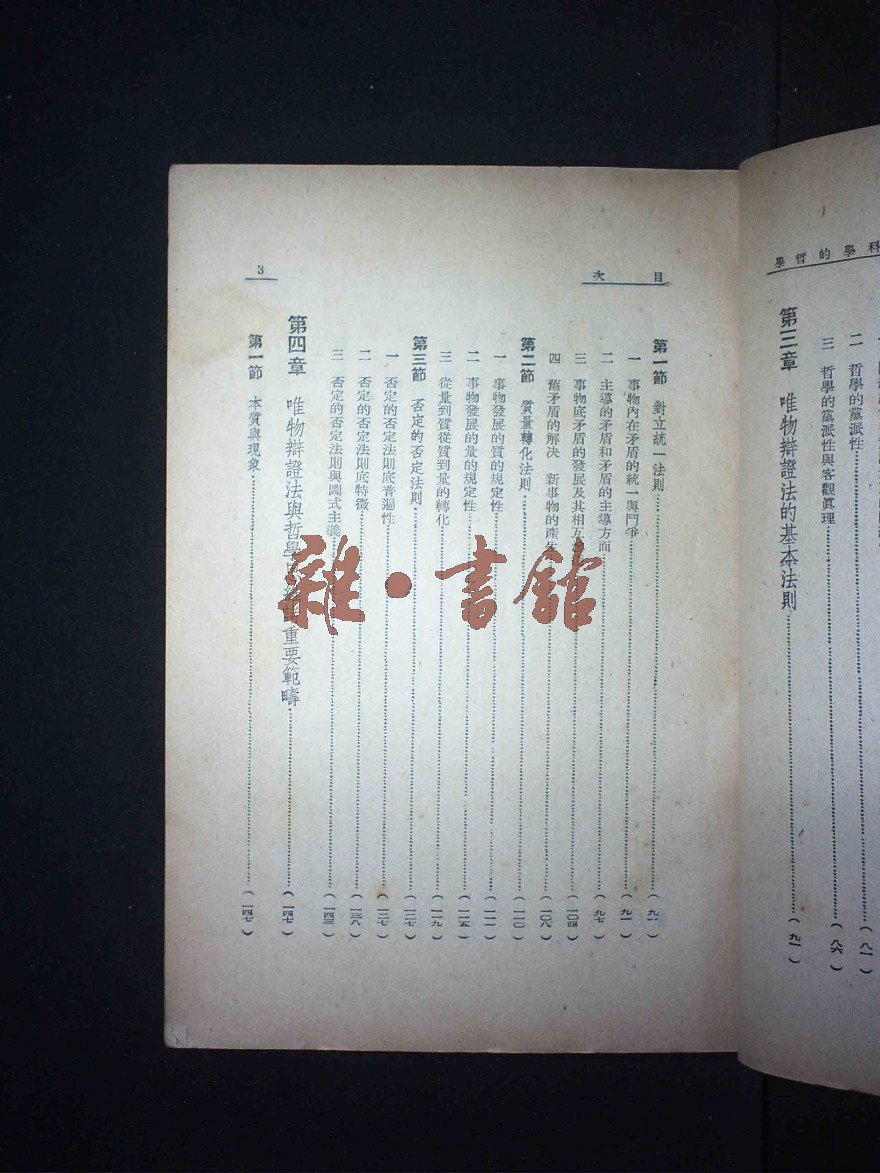 科學的哲學
二 哲學的黨派性……(八一)
三 哲學的黨派性與客觀眞理……(八六)
第三章 唯物辯證法的基本法則……(九一)
目次
第一節 對立統一法則……(九一)
一 事物內在矛盾的統一與鬥爭……(九一)
二 主導的矛盾和矛盾的主導方面……(九七)
三 事物底矛盾的發展及其相互……(一〇四)
四 舊矛盾的解決 新事物的產生……(一〇八)
第二節 質量轉化法則……(一一〇)
一 事物發展的質的規定性……(一一一)
二 事物發展的量的規定性……(一一五)
三 從量到質從質到量的轉化……(一一九)
第三節 否定的否定法則……(一二七)
一 否定的否定法則底普遍性……(一二七)
二 否定的否定法則底特徵……(一三八)
三 否定的否定法則與圖式主義……(一四三)
第四章 唯物辯證法與哲學重要範疇……(一四七)
第一節 本質與現象……(一四七)
3
雜·書館